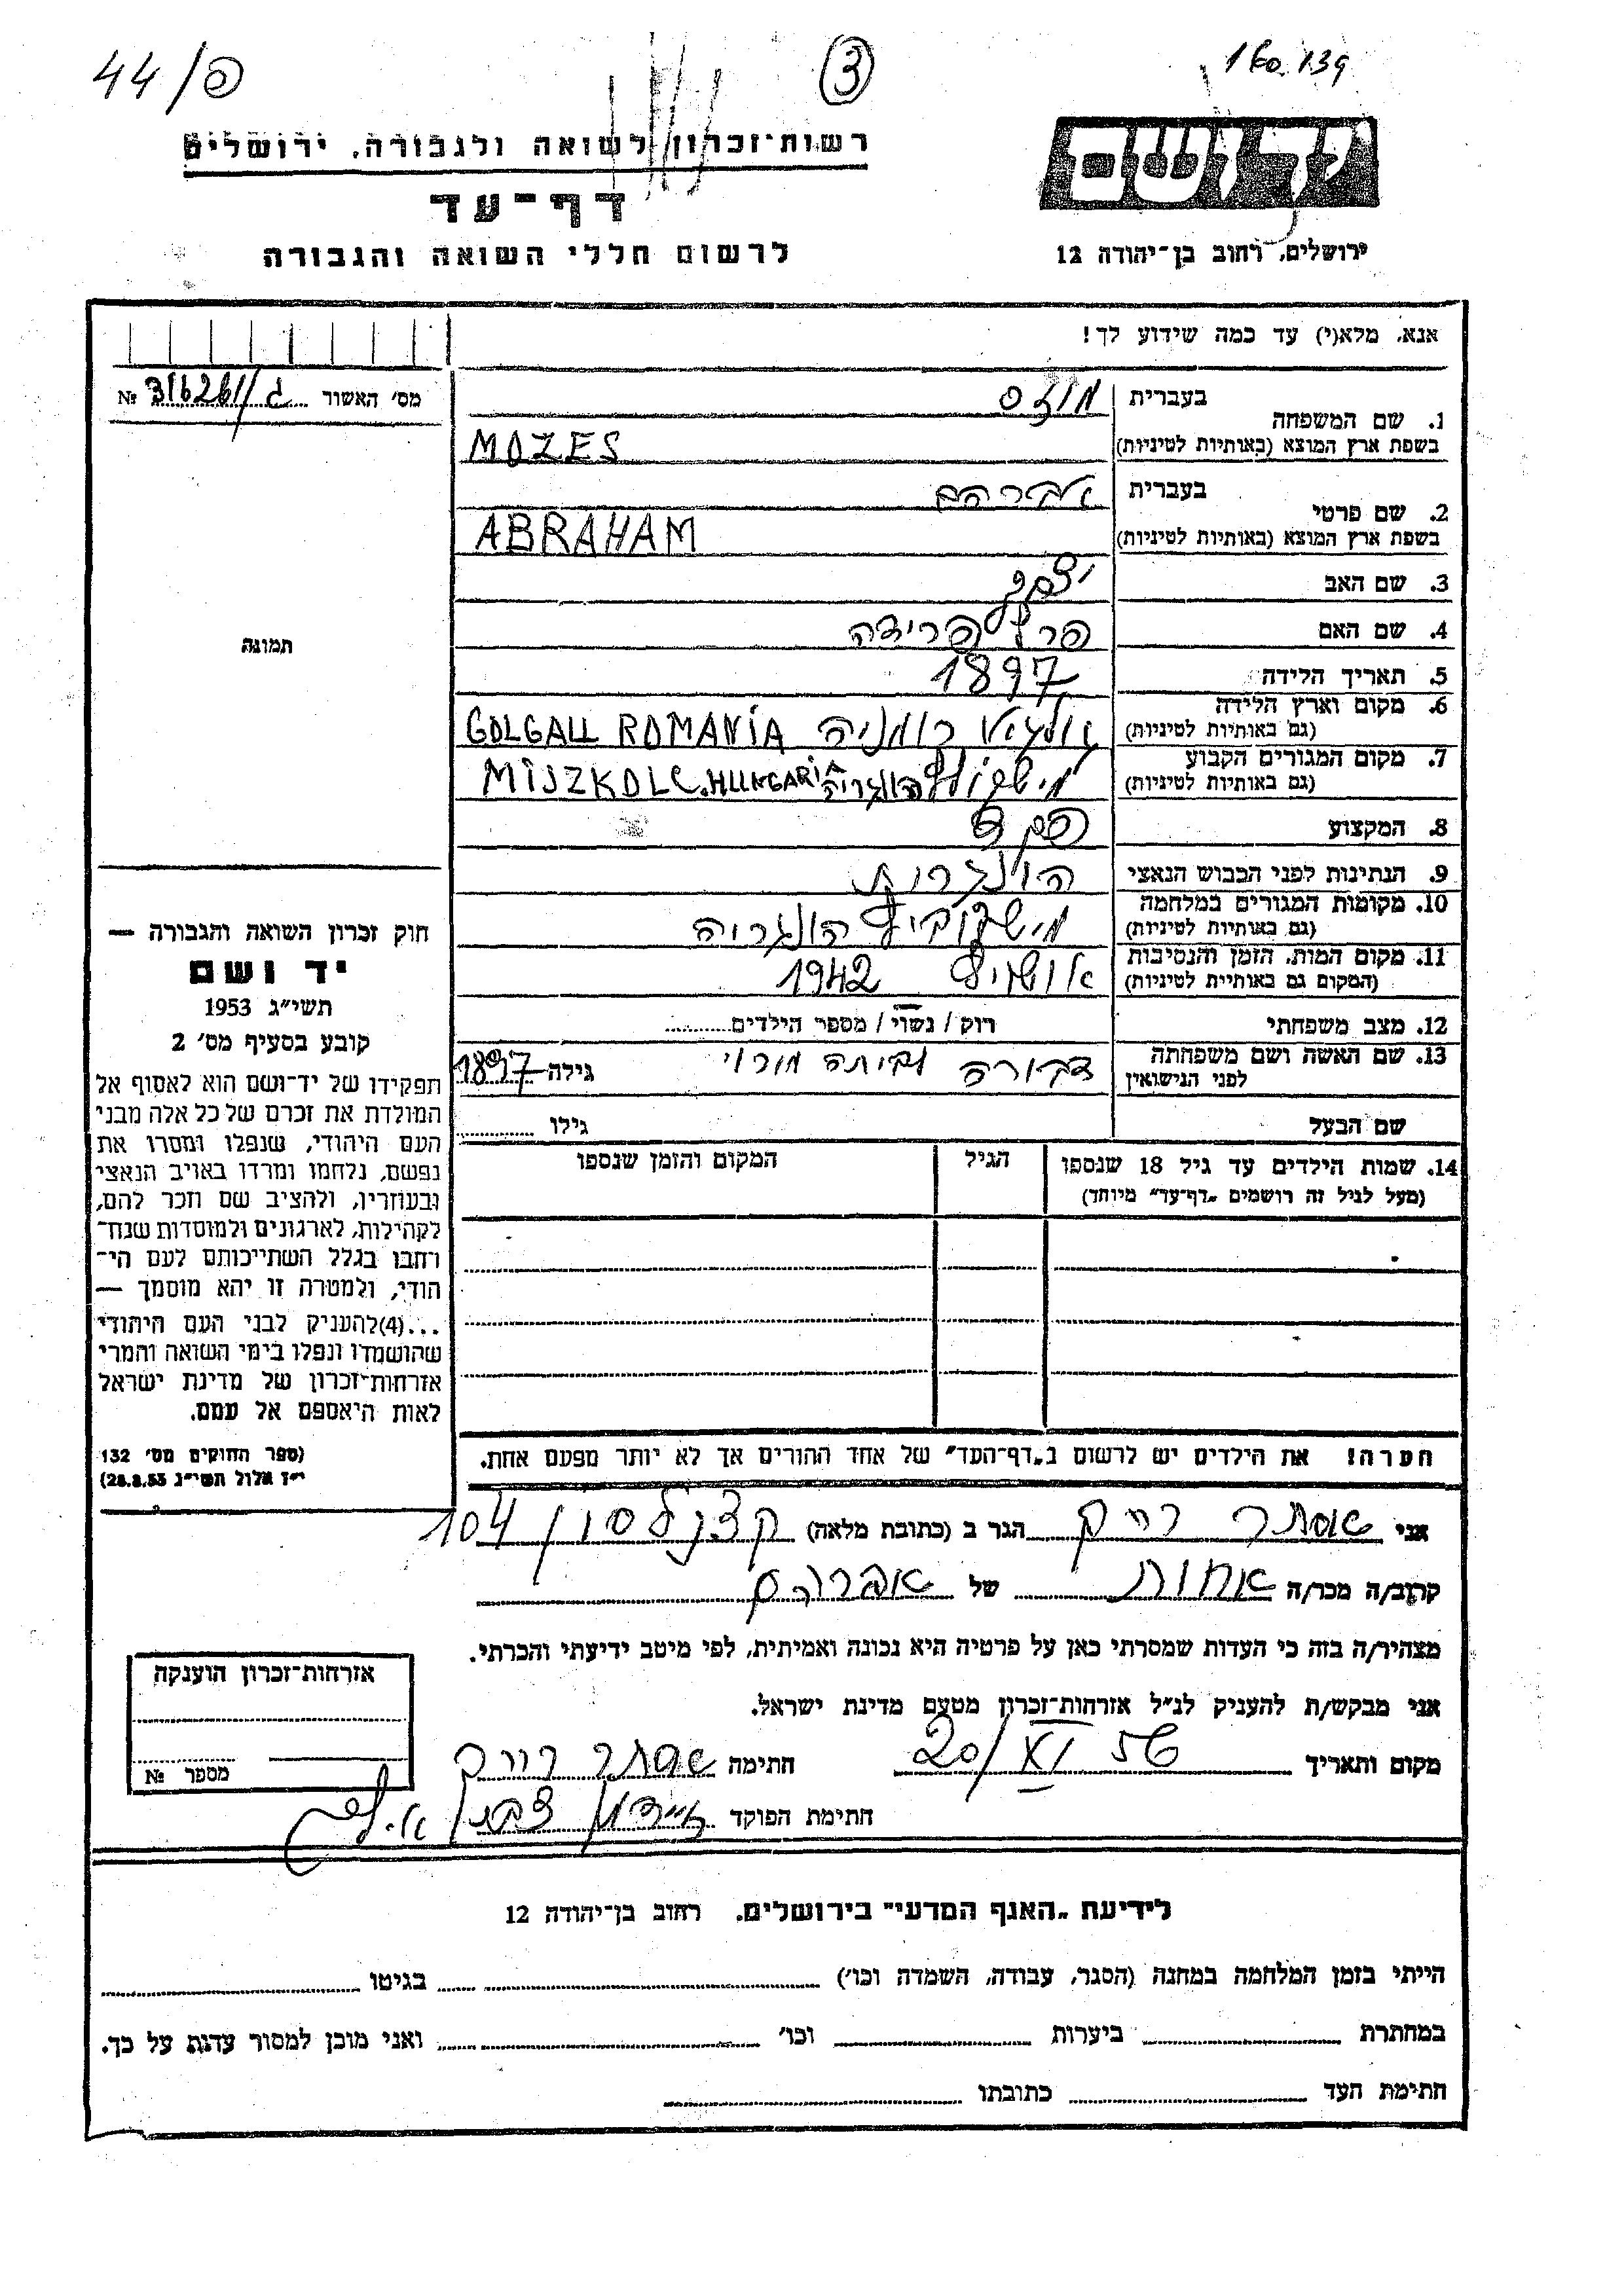 44/פ
3
רשות־זכרון לשואה ולגבורה, ירושלים
דף־עד
לרשום חללי השואה והגבורה
יד ושם
ירושלים, רחוב בן־יהודה 12
אנא, מלא(י) עד כמה שידוע לך!
מס' האשור ג/316261 №
תמונה
1. שם המשפחה
בעברית מוזס
בשפת ארץ המוצא (באותיות לטיניות) MOZES
2. שם פרטי
בעברית אברהם
בשפת ארץ המוצא (באותיות לטיניות) ABRAHAM
3. שם האב יצחק
4. שם האם פרל פרידה
5. תאריך הלידה 1897
6. מקום וארץ הלידה
(גם באותיות לטיניות) רומניה GOLGALL ROMANIA
7. מקום המגורים הקבוע
(גם באותיות לטיניות) מישקולץ הונגריה MISZKOLC. HUNGARIA
8. המקצוע
9. הנתינות לפני הכבוש הנאצי הונגרית
10. מקומות המגורים במלחמה
(גם באותיות לטיניות) הונגריה
11. מקום המות, הזמן והנסיבות
(המקום גם באותיית לטיניות) אושויץ 1942
12. מצב משפחתי רוק / נשוי / מספר הילדים
13. שם האשה ושם משפחתה
לפני הנישואין דבורה גילה 1897
שם הבעל גילו
14. שמות הילדים עד גיל 18 שנספו הגיל המקום והזמן שנספו
(מעל לגיל זה רושמים „דף־עד" מיוחד)
הערה! את הילדים יש לרשום ב„דף־העד" של אחד ההורים אך לא יותר מפעם אחת.
חוק זכרון השואה והגבורה —
יד ושם
תשי"ג 1953
קובע בסעיף מס' 2
תפקידו של יד־ושם הוא לאסוף אל
המולדת את זכרם של כל אלה מבני
העם היהודי, שנפלו ומסרו את
נפשם, נלחמו ומרדו באויב הנאצי
ובעוזריו, ולהציב שם וזכר להם,
לקהילות, לארגונים ולמוסדות שנח־
רחבו בגלל השתייכותם לעם הי־
הודי, ולמטרה זו יהא מוסמך —
...(4)להעניק לבני העם היהודי
שהושמדו ונפלו בימי השואה והמרי
אזרחות־זכרון של מדינת ישראל
לאות היאספם אל עמם.
(ספר החוקים מס' 132
י"ז אלול תשי"ג 28.8.53)
אני אסתר רייך הגר ב (כתובת מלאה) קצנלסון 104
קרוב/ה מכר/ה אחות של אברהם
מצהיר/ה בזה כי העדות שמסרתי כאן על פרטיה היא נכונה ואמיתית, לפי מיטב ידיעתי והכרתי.
אני מבקש/ת להעניק לנ"ל אזרחות־זכרון מטעם מדינת ישראל.
מקום ותאריך 20/XI 56 חתימה אסתר רייך
חתימת הפוקד
אזרחות־זכרון הוענקה
מספר №
לידיעת „האגף המדעי" בירושלים. רחוב בן־יהודה 12
הייתי בזמן המלחמה במחנה (הסגר, עבודה, השמדה וכו') בגיטו
במחתרת ביערות וכו' ואני מוכן למסור עדות על כך.
חתימת העד כתובתו